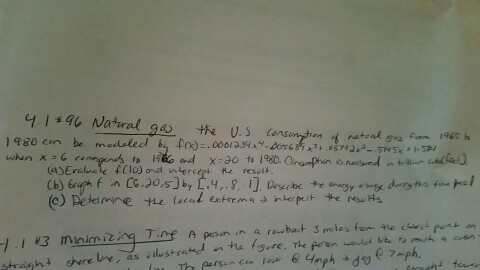 4.1 #96 Natural gas the U.S consumption of natural gas from 1965 to
1980 can be modeled by f(x)=.0001234x⁴-.005689x³+.05792x²-.5145x+1.514
when x=6 corresponds to 1966 and x=20 to 1980. Consumption is measured in trillion cubic feet.
(a) Evaluate f(10) and interpret the result.
(b) Graph f in [6,20,5] by [.4,.8,.1]. Describe the energy usage during this time period
(c) Determine the local extrema + interpret the results
4.1 #3 minimizing Time A person in a rowboat 3 miles from the closest point on
straight shore line, as illustrated in the figure. The person would like to reach a
The person can row @ 4mph + jog @ 7mph,
straight toward